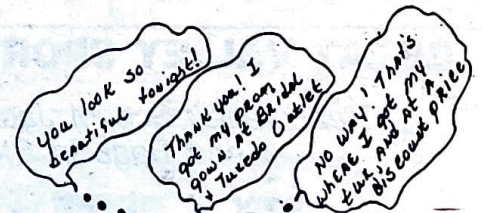 you look so
beautiful tonight!
Thank you! I
got my prom
gown at Bridal
+ Tuxedo Outlet
NO way! That's
where I got my
tux AND AT A
DISCOUNT PRICE